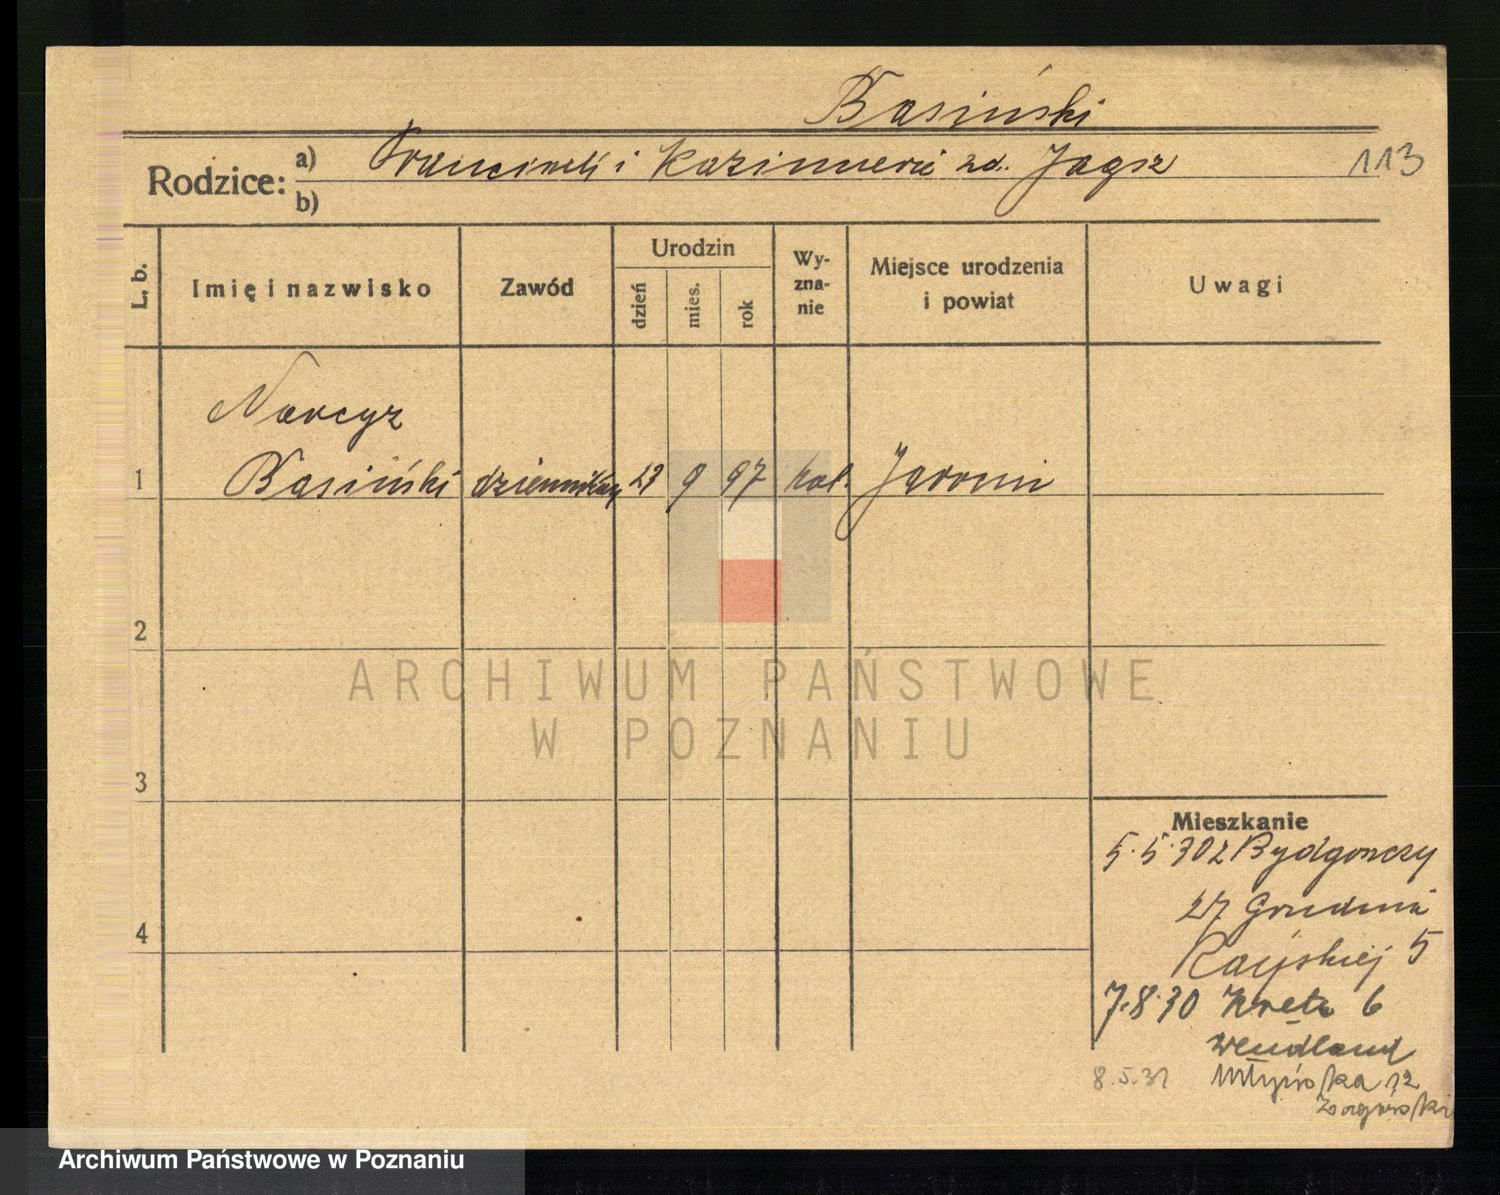 Basiński
Rodzice: a) Franciszek i Kazimiera zd.
b)
113
L. b. Imię i nazwisko Zawód Urodzin dzień mies. rok Wyznanie Miejsce urodzenia i powiat Uwagi
Narcyz
1 Basiński dziennikarz 23 9 97 kat. Jarocin
2
ARCHIWUM PAŃSTWOWE
W POZNANIU
3
Mieszkanie
5.5.30 z Bydgoszczy
27 Grudnia
4
5
7.8.30 Kręta 6
Wendland
8.5.31 Młyńska 12
Zagórski
Archiwum Państwowe w Poznaniu